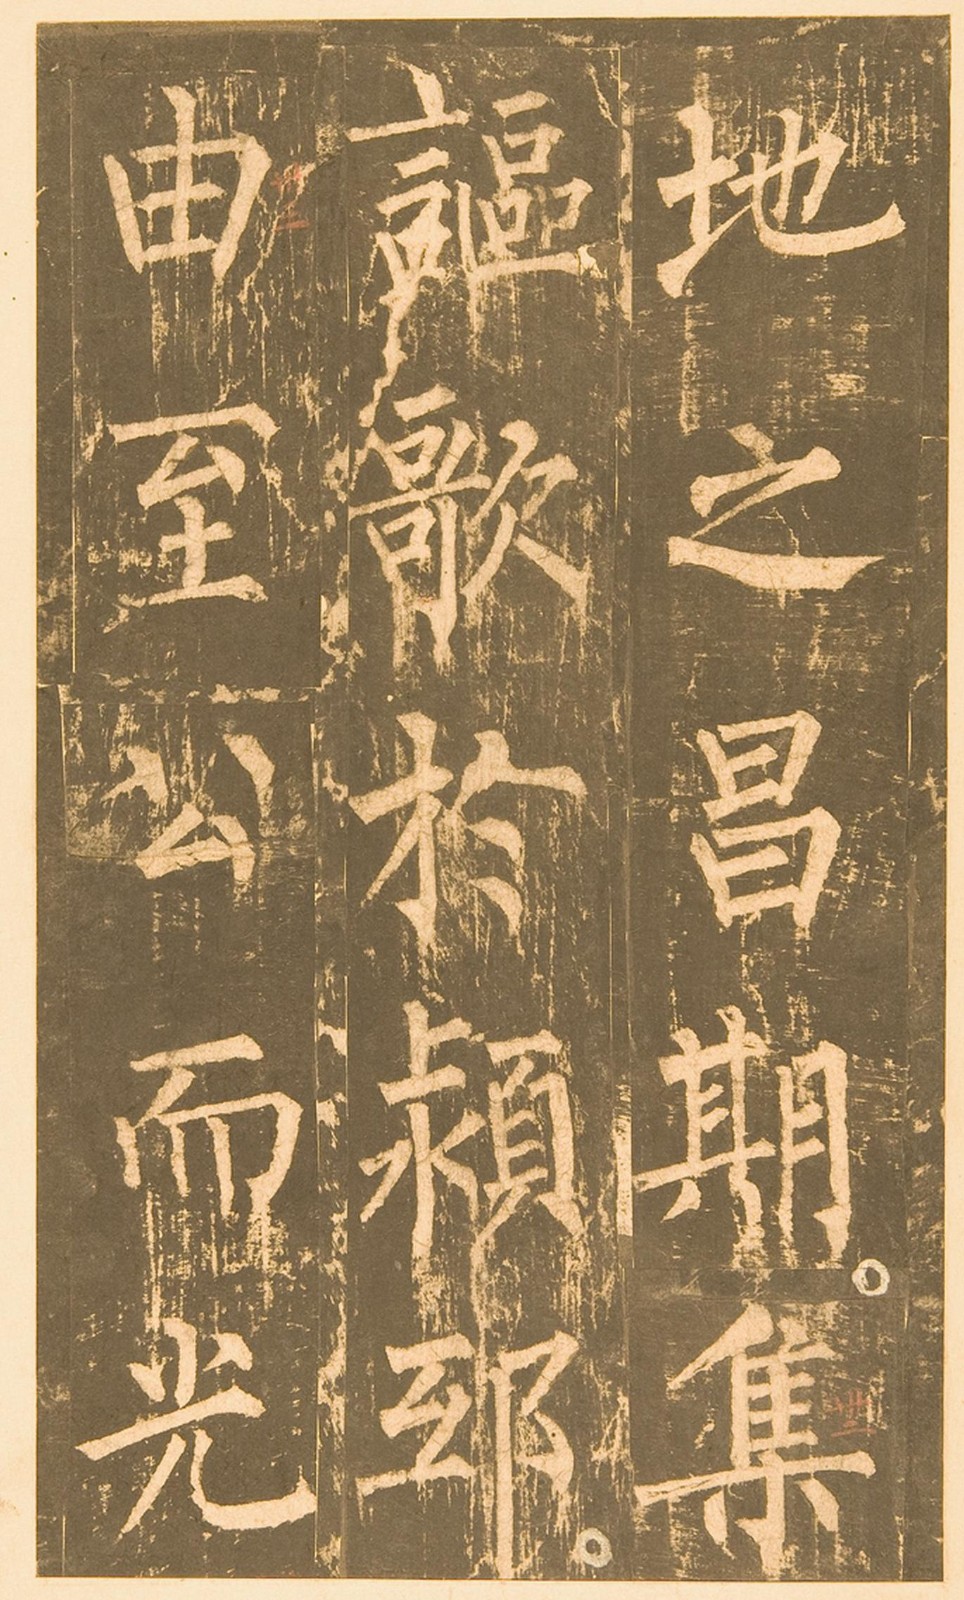 地之昌期集
謳歌於潁邳
由至公而光